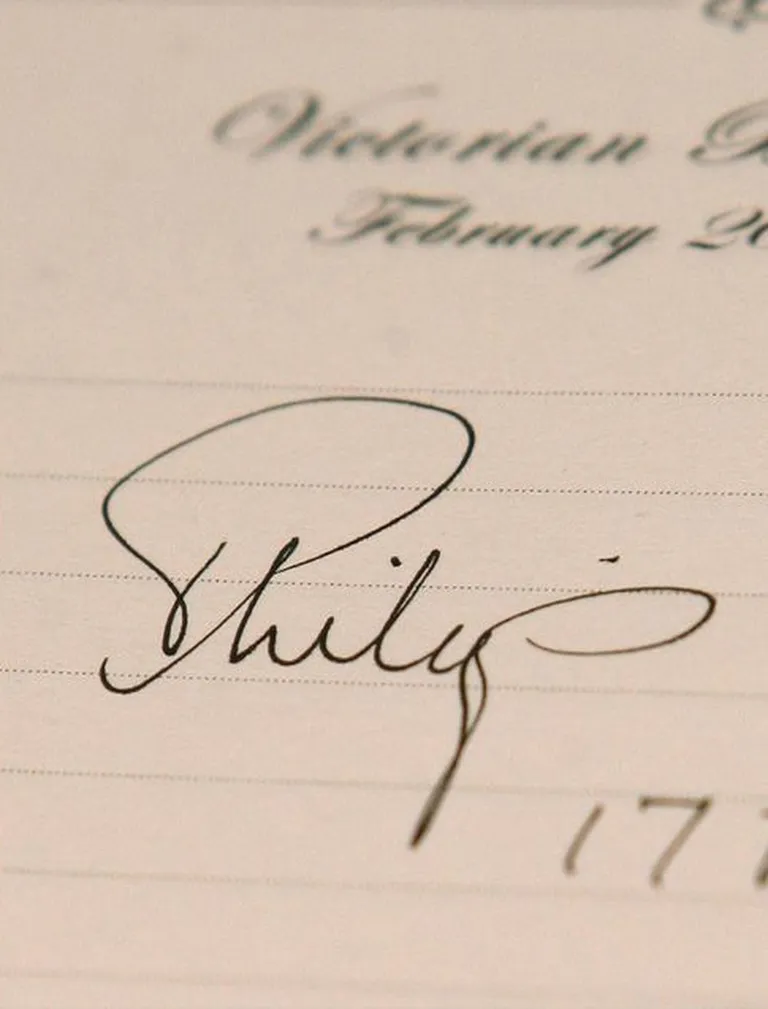 Victorian
February 20
Philip
17